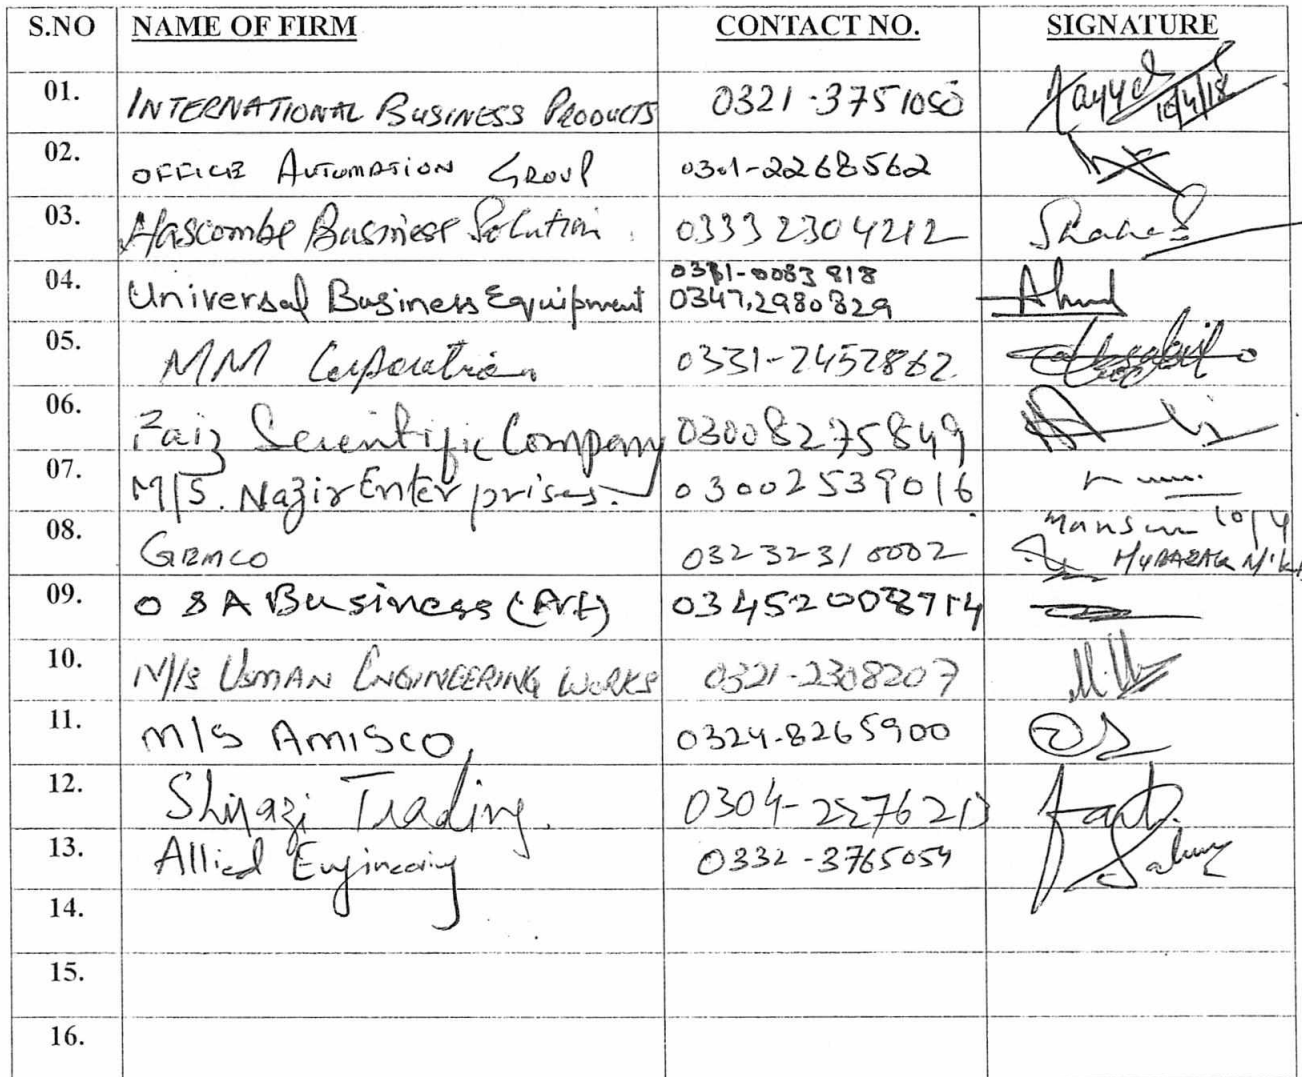 S.NO NAME OF FIRM CONTACT NO. SIGNATURE
01. INTERNATIONAL BUSINESS PRODUCTS 0321-3751050 10/4/18
02. OFFICE AUTOMATION GROUP 0301-2268562
03. Hascombe Business Solution. 03332304212
04. Universal Business Equipment 0331-0083818
0347.2980829 Ahmed
05. MM Corporation 0331-2452862
06. Faiz Scientific Company 03008275849
07. M/S. Nazir Enterprises. 03002539016
08. GEMCO 03232310002
09. O S A Business (Pvt)
10. M/S USMAN ENGINEERING WORKS 0321-2308207
11. M/S AMISCO, 0324-8265900
12. Shirazi Trading. 0304-2276213
13. Allied Engineering 0332-3765054
14.
15.
16.